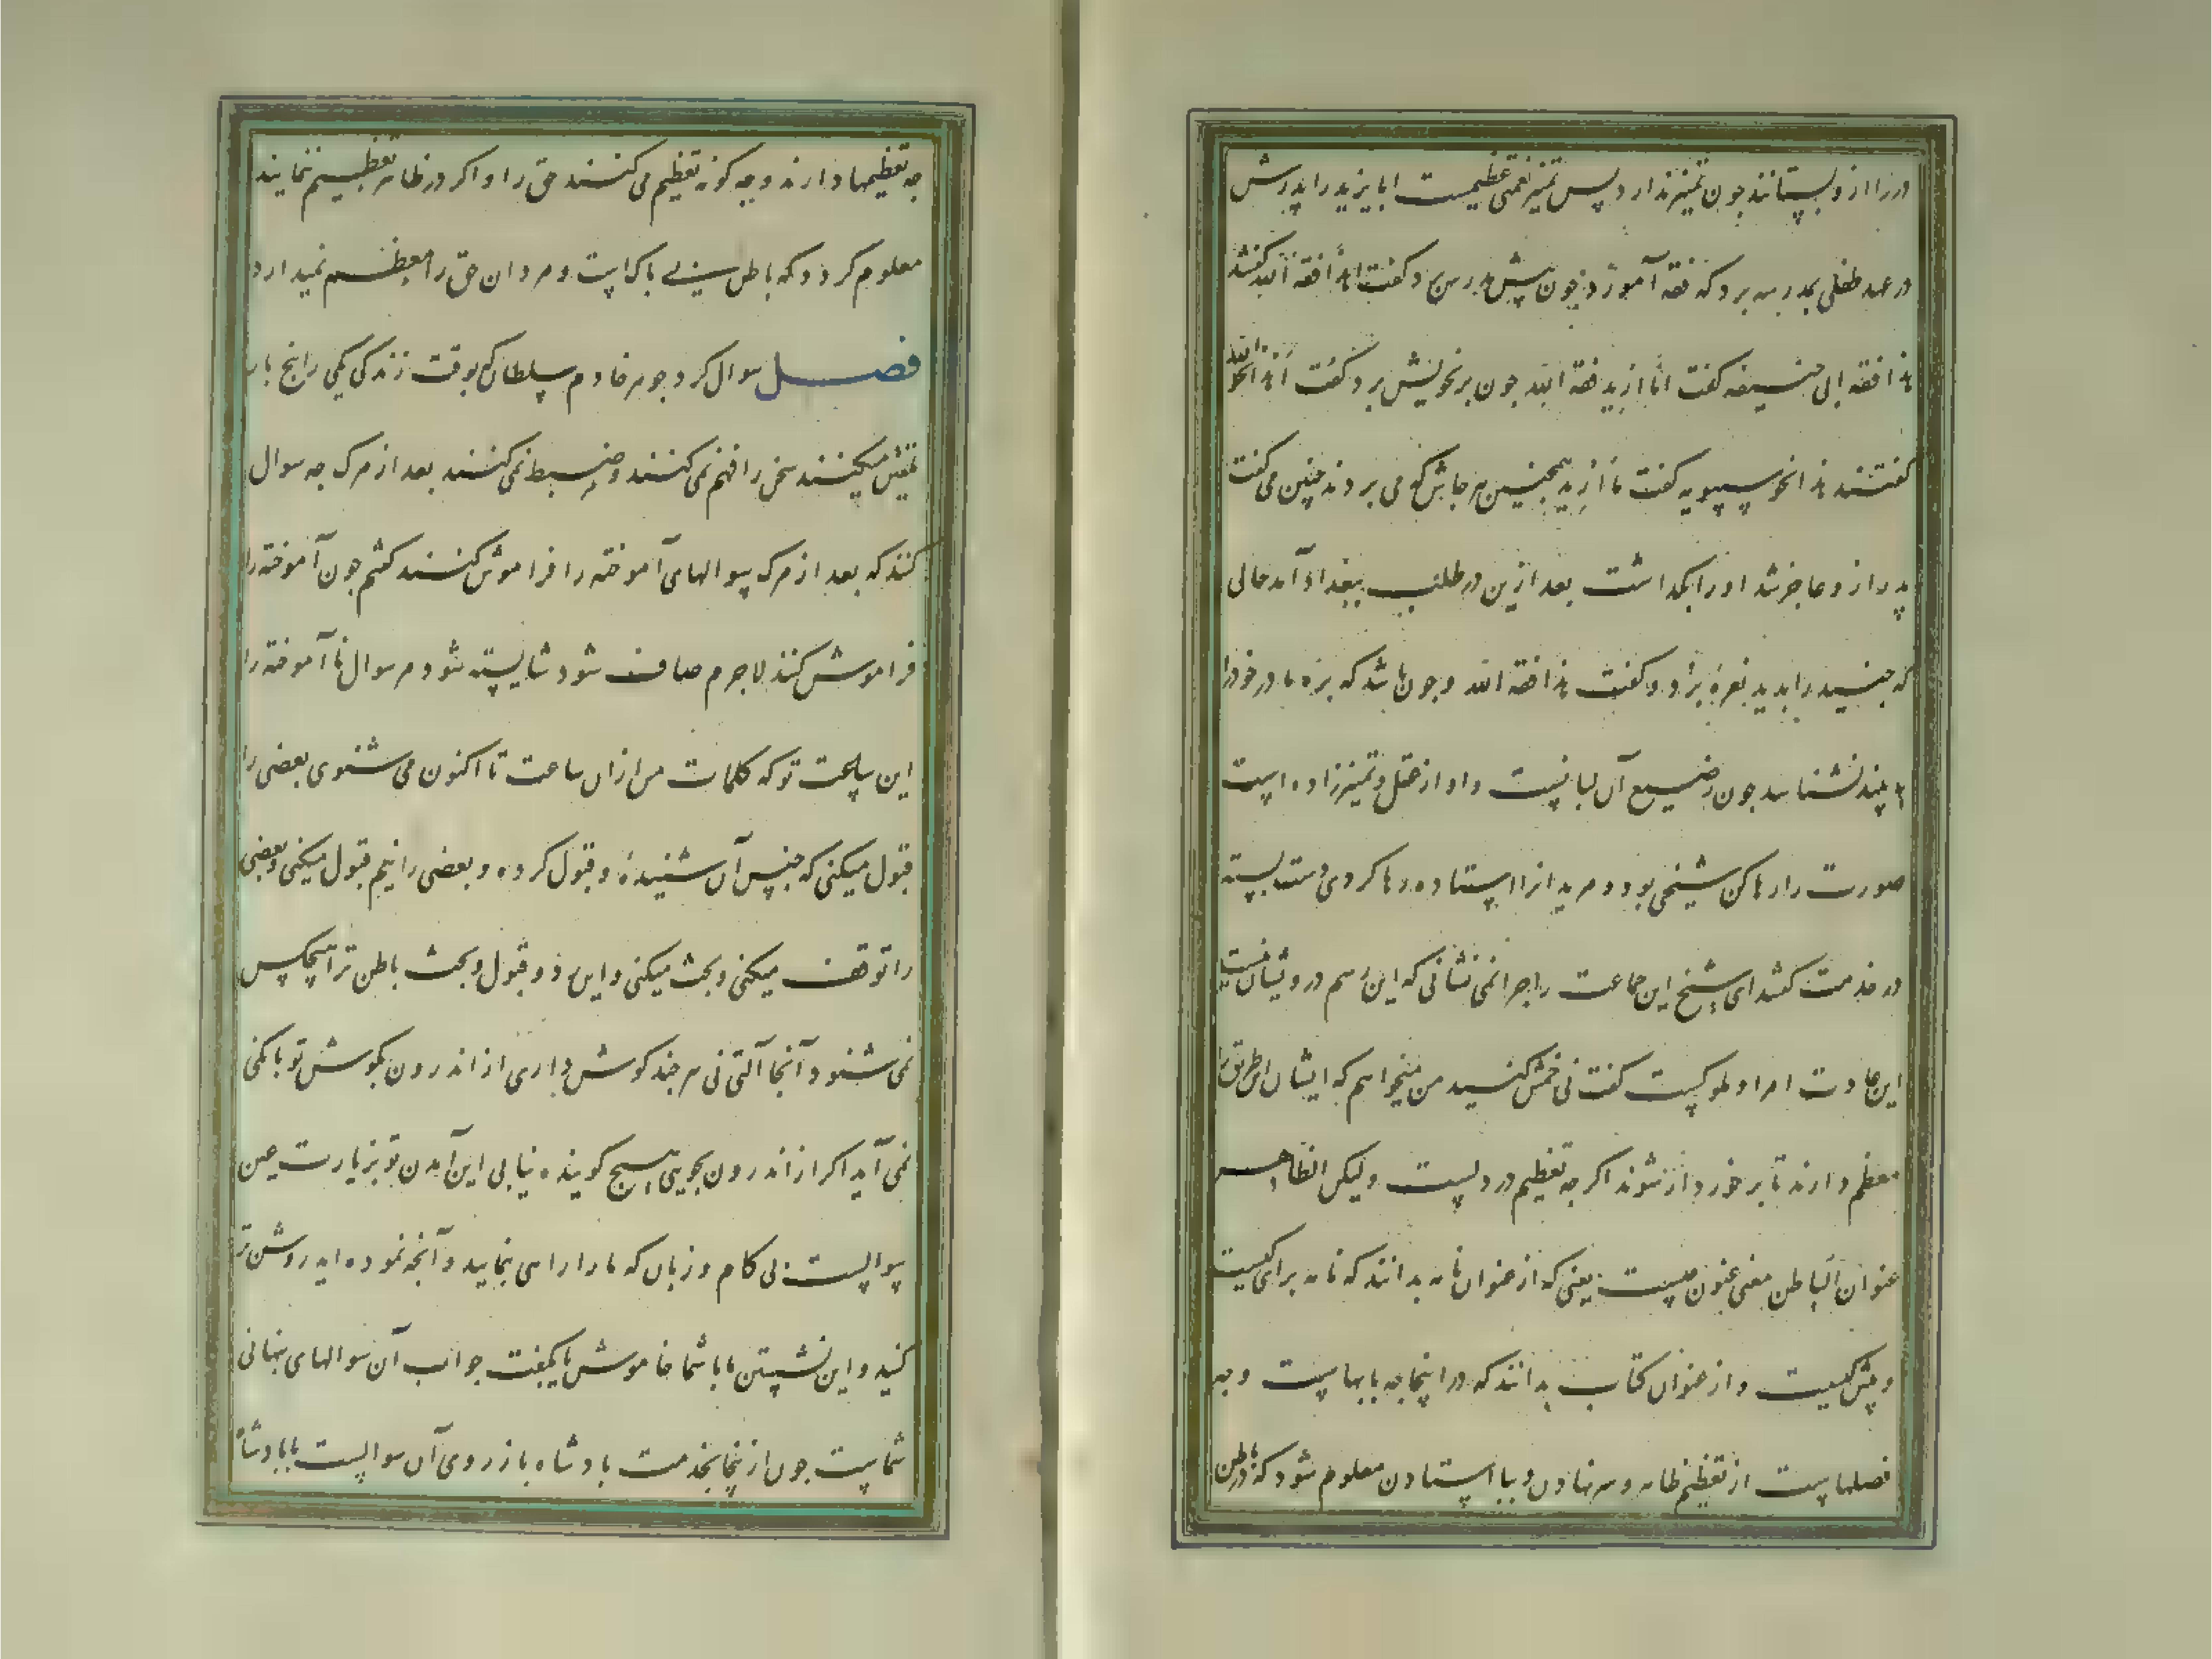 درزا ازو بستانند چون تمیز ندارد پس تمیز نعمتی عظیمست ابایزید را پدرش
در عهد طفلی بمدرسه برد که فقه آموزد چون پیش مدرس برد گفت اهذا فقه الله گفتند
هذا فقه ابی حنیفه گفت انا ارید فقه الله چون بر نحویش برد گفت اهذا نحو الله
گفتند هذا نحو سیبویه گفت ما ارید همچنین هر جاش که می بردند چنین می گفت
پدر ازو عاجز شد او را بگذاشت بعد ازین در طلب ببغداد آمد حالی
که جنید را بدید نعره بزد و گفت هذا فقه الله و چون باشد که بره مادر خود را
نشناسد چون رضیع آن لبانست و او از عقل و تمیز زاده است
صورت را رها کن شیخی بود و مریدانرا ایستاده رها کردی دست بسته
در خدمت گفتند ای شیخ این جماعت را چرا نمی نشانی که این رسم درویشان نیست
این عادت امرا و ملوکست گفت نی خمش کنید من میخواهم که ایشان این طریق را
معظم دارند تا برخوردار شوند اگرچه تعظیم در دلست ولیکن الظاهر
عنوان الباطن معنی عنوان چیست یعنی که از عنوان نامه بدانند که نامه برای کیست
و پیش کیست و از عنوان کتاب بدانند که در اینجا چه بابهاست و چه
فصلهاست از تعظیم ظاهر و سر نهادن و بپا ایستادن معلوم شود که در باطن
چه تعظیمها دارند و چه گونه تعظیم می کنند حق را و اگر در ظاهر تعظیم ننمایند
معلوم گردد که باطن بی باکست و مردان حق را معظم نمیدارد
فصل سوال کرد جوهر خادم سلطان که بوقت زندگی یکی را پنج بار
تلقین میکنند سخن را فهم نمی کنند و ضبط نمی کنند بعد از مرگ چه سوال
کنند که بعد از مرگ سوالهای آموخته را فراموش کنند گفتم چون آموخته را
فراموش کند لاجرم صاف شود شایسته شود مر سوال نا آموخته را
این ساعت تو که کلمات من از آن ساعت تا اکنون می شنوی بعضی را
قبول میکنی که جنس آن شنیده و قبول کرده و بعضی را نیم قبول میکنی و بعضی
را توقف میکنی و بحث میکنی و این رد و قبول و بحث باطن ترا هیچکس
نمی شنود آنجا آلتی نی هر چند گوش داری از اندرون بگوش تو بانگی
نمی آید اگر از اندرون بجویی هیچ گوینده نیابی این آمدن تو بزیارت عین
سوالست بی کام و زبان که ما را راهی بنمایید و آنچه نموده اید روشن تر
کنید و این نشستن ما با شما خاموش یا بگفت جواب آن سوالهای پنهانی
شماست چون ازینجا بخدمت پادشاه باز روی آن سوالست با پادشاه